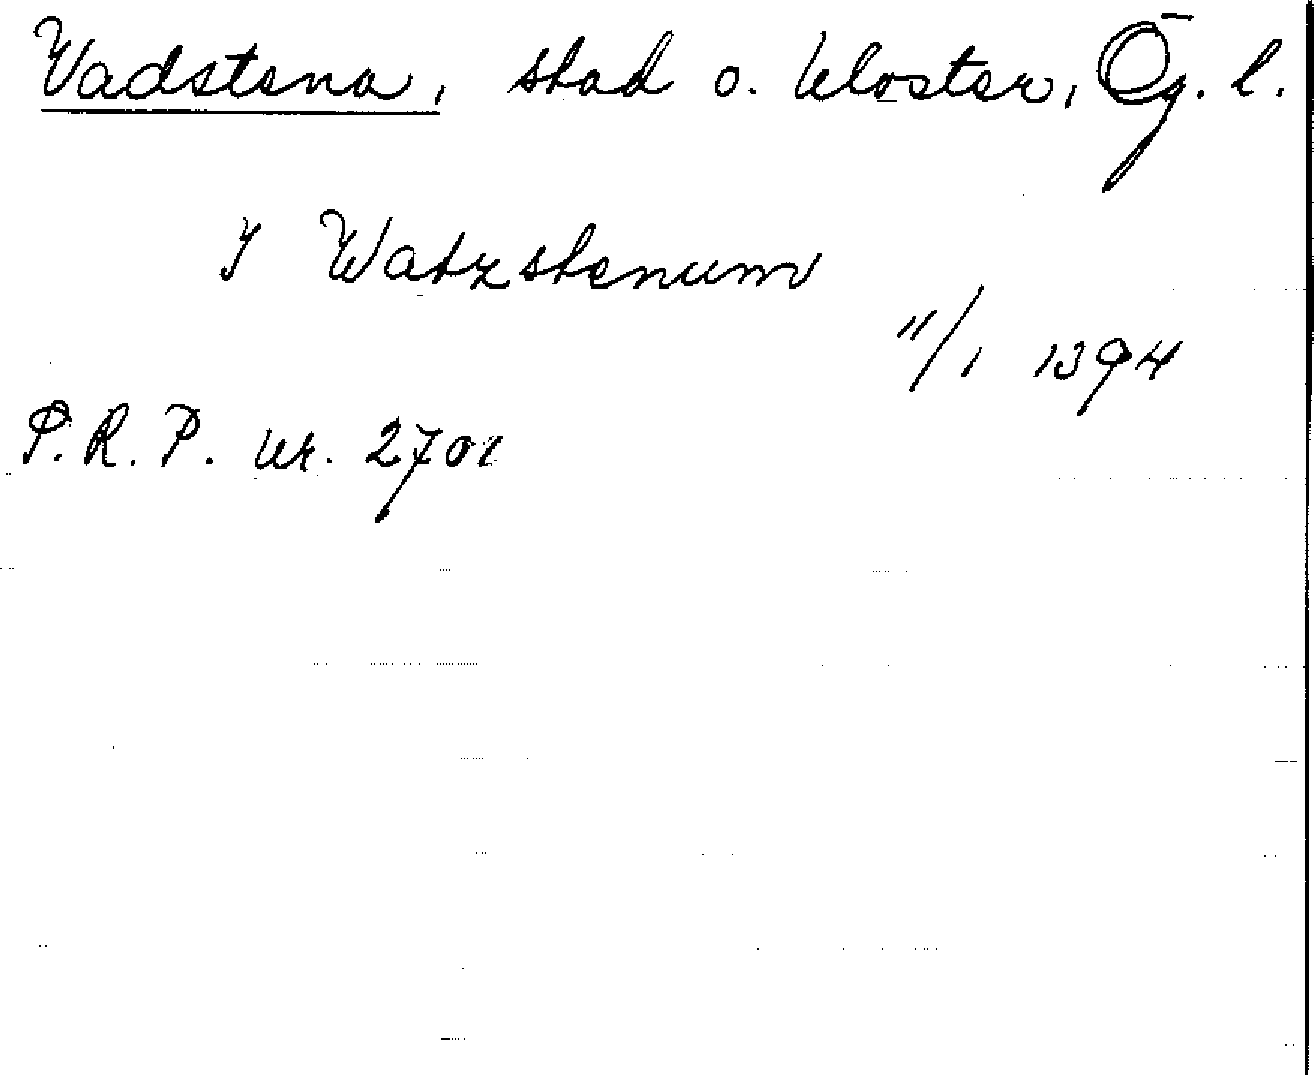 Vadstena, stad o. kloster, Ög. l.
I Watzstenum
11/1 1394
P.R.P. nr. 2701